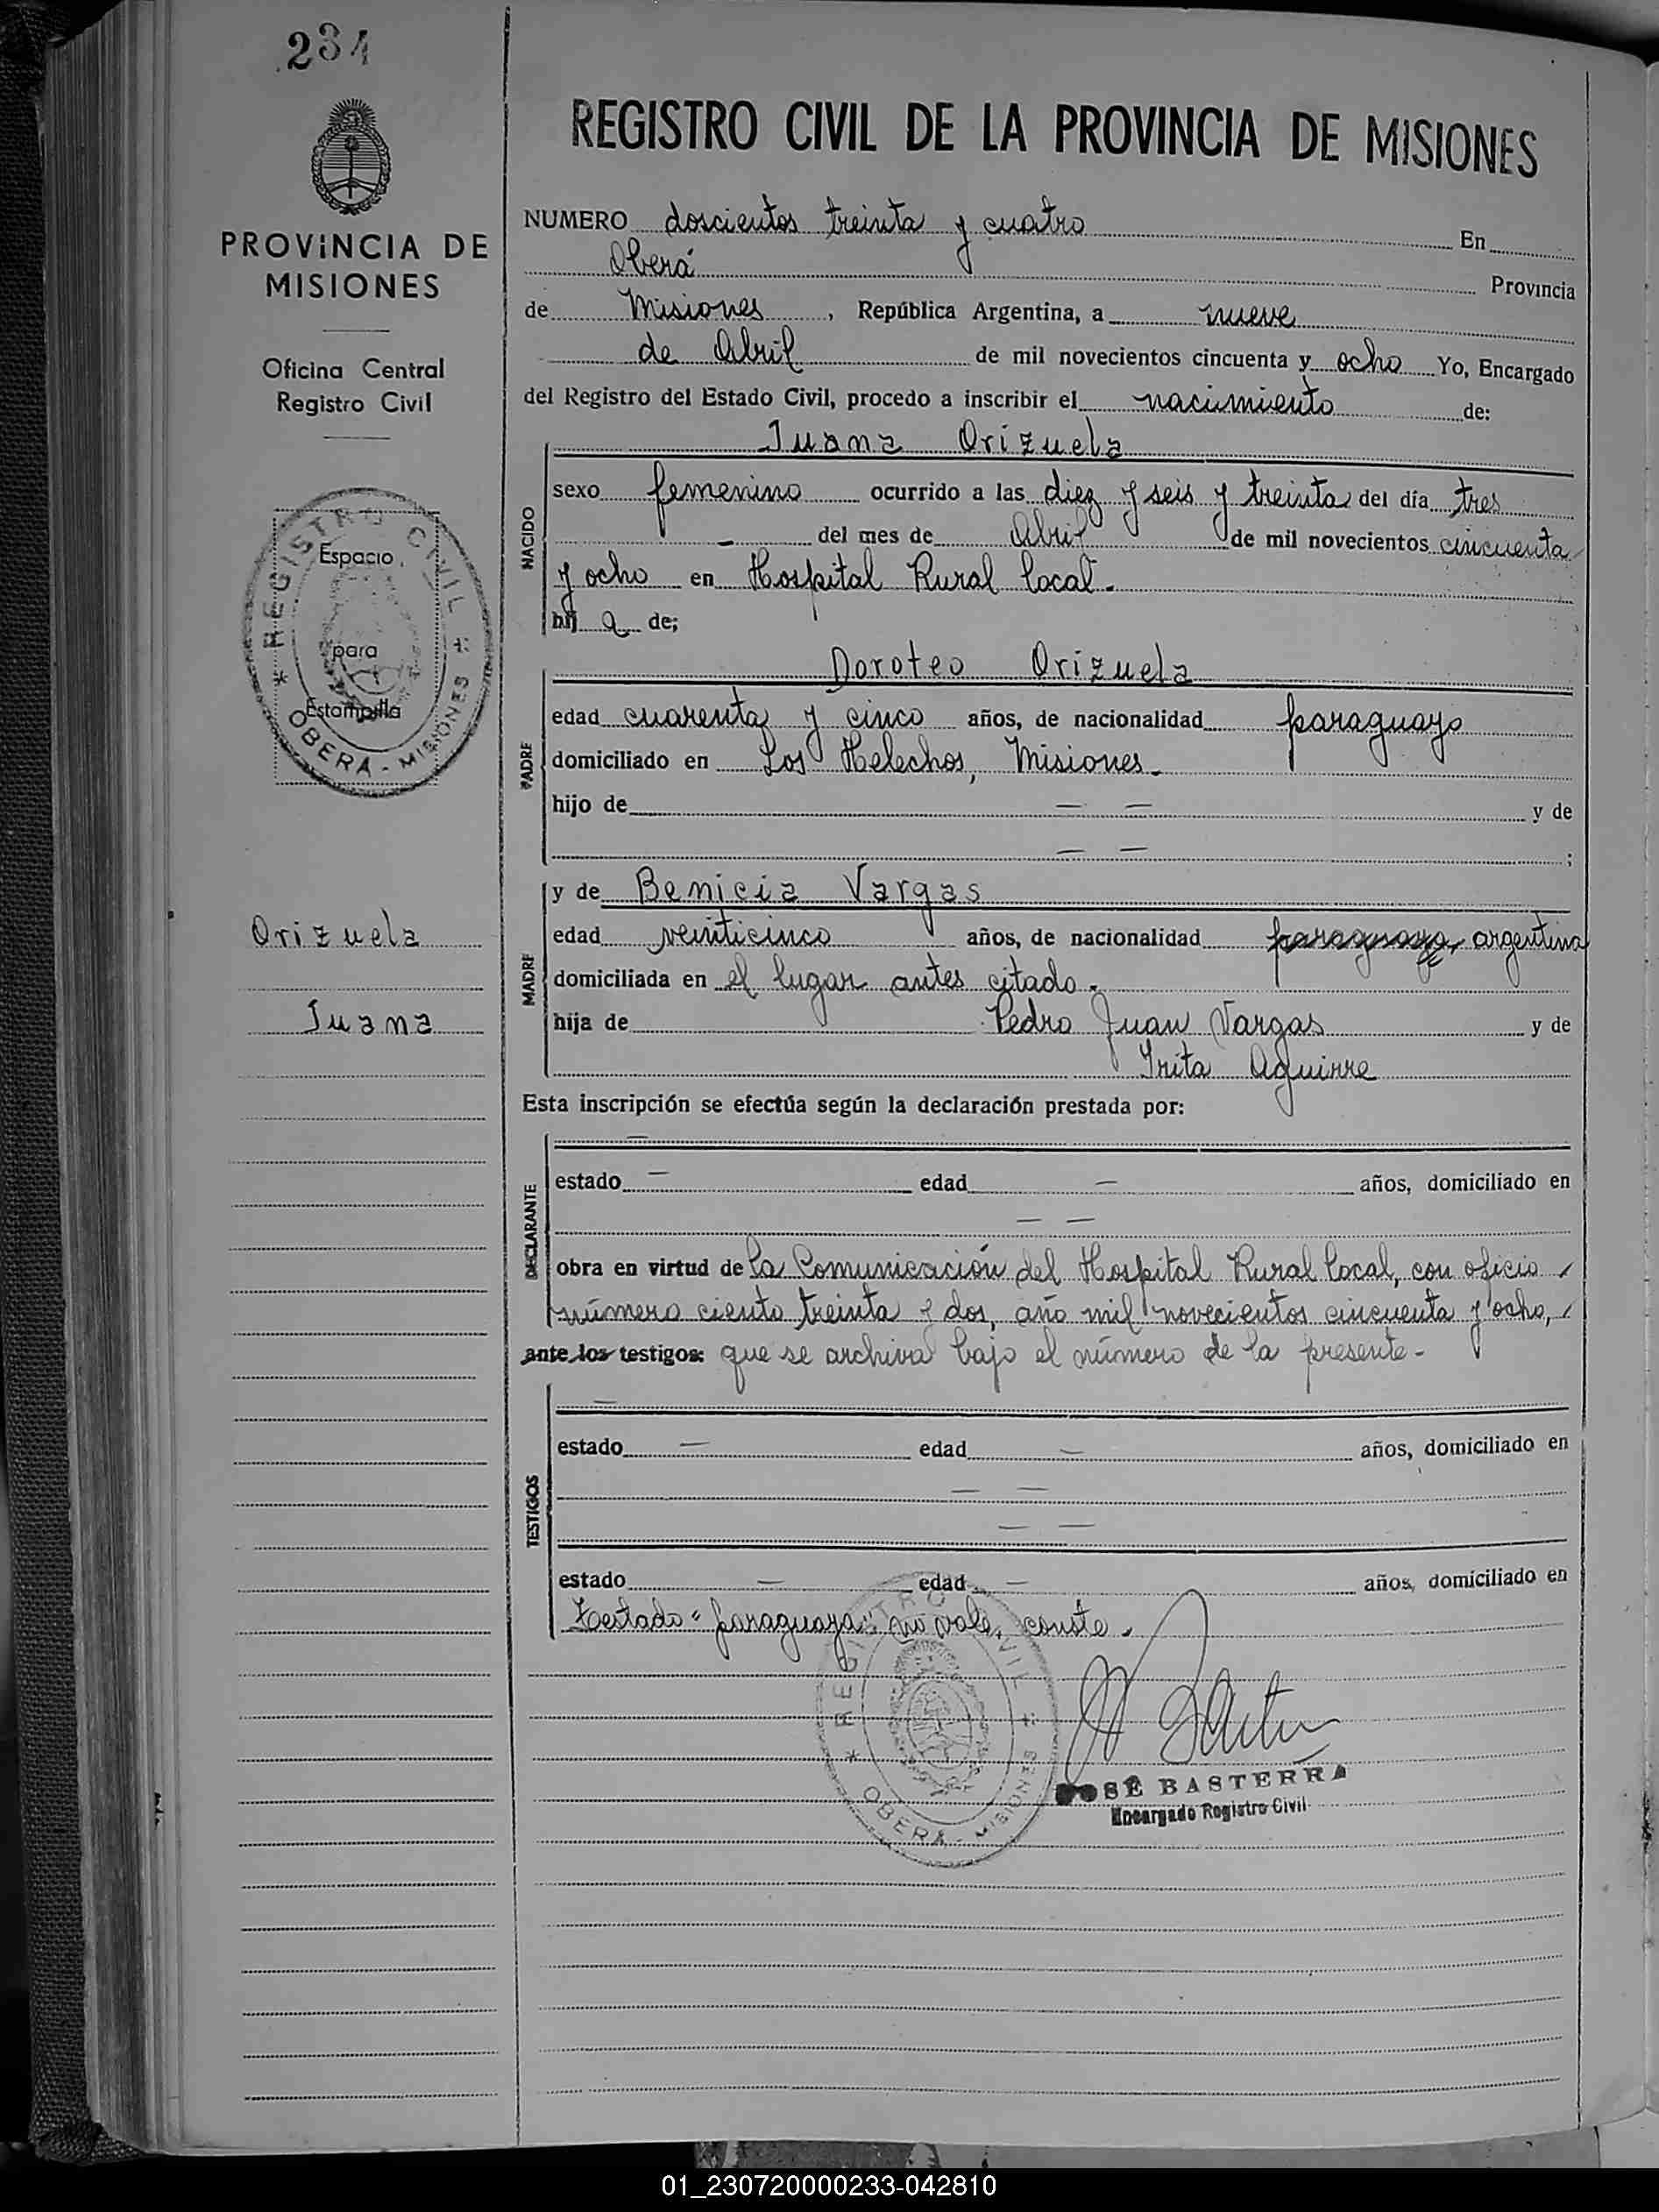 234
PROVINCIA DE
MISIONES
Oficina Central
Registro Civil
* REGISTRO CIVIL * OBERÁ - MISIONES
Espacio
para
Estampilla
Orizuela
Juana
REGISTRO CIVIL DE LA PROVINCIA DE MISIONES
NUMERO doscientos treinta y cuatro En
Oberá Provincia
de Misiones, República Argentina, a nueve
de Abril de mil novecientos cincuenta y ocho Yo, Encargado
del Registro del Estado Civil, procedo a inscribir el nacimiento de:
Juana Orizuela
NACIDO
sexo femenino ocurrido a las diez y seis y treinta del día tres
- del mes de Abril de mil novecientos cincuenta
y ocho en Hospital Rural local.
hij a de;
Doroteo Orizuela
PADRE
edad cuarenta y cinco años, de nacionalidad paraguayo
domiciliado en Los Helechos, Misiones.
hijo de — — y de
— — ;
MADRE
y de Benicia Vargas
edad veinticinco años, de nacionalidad paraguaya, argentina
domiciliada en el lugar antes citado.
hija de Pedro Juan Vargas y de
Irita Aguirre
Esta inscripción se efectúa según la declaración prestada por:
DECLARANTE
—
estado — edad — años, domiciliado en
— —
obra en virtud de la Comunicación del Hospital Rural local, con oficio
número ciento treinta y dos, año mil novecientos cincuenta y ocho,
ante los testigos: que se archiva bajo el número de la presente-
TESTIGOS
—
estado — edad — años, domiciliado en
— —
— —
estado — edad — años, domiciliado en
Testado "paraguaya" no vale, conste.
* REGISTRO CIVIL * OBERÁ - MISIONES
JOSÉ BASTERRA
Encargado Registro Civil
01_230720000233-042810